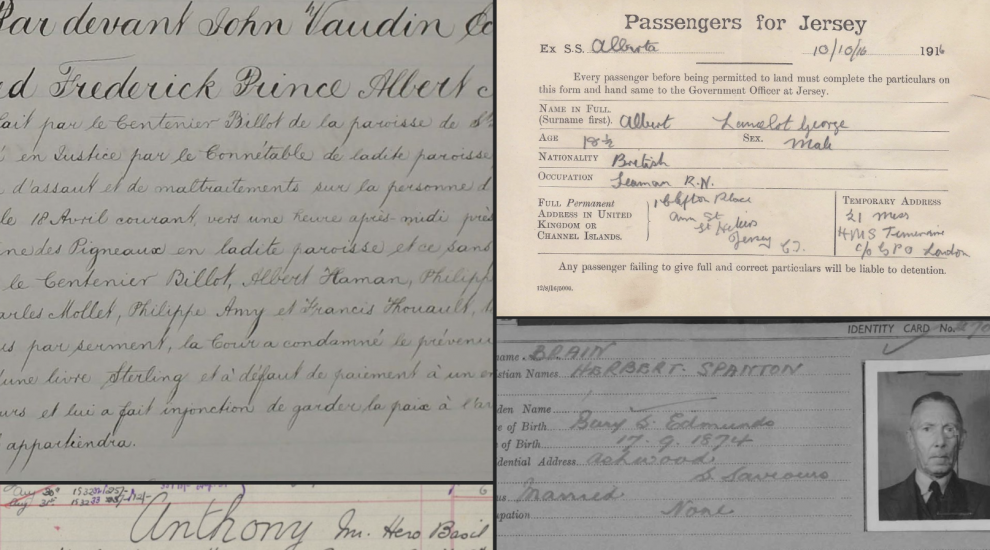 Par devant John Vaudin
Frederick Prince Albert
fait par le Centenier Billot de la paroisse de St
en Justice par le Connétable de ladite paroisse
d'assaut et de maltraitements sur la personne
le 18 Avril courant, vers une heure après-midi près
des Pigneaux en ladite paroisse et ce sans
le Centenier Billot, Albert Haman, Philippe
Mollet, Philippe Amy et Francis Thouault,
par serment, la Cour a condamné le prévenu
une livre Sterling et à défaut de paiement à un
et lui a fait injonction de garder la paix à
appartiendra.
Anthony Mr. Hero Basil
Passengers for Jersey
Ex S.S. Alberta 10/10/16 1916
Every passenger before being permitted to land must complete the particulars on
this form and hand same to the Government Officer at Jersey.
NAME IN FULL.
(Surname first). Albert Lancelot George
AGE 18½ SEX. Male
NATIONALITY British
OCCUPATION Seaman R.N.
FULL Permanent
ADDRESS IN UNITED
KINGDOM OR
CHANNEL ISLANDS.
1 Clifton Place
Ann St
St Heliers
Jersey C.I.
TEMPORARY ADDRESS
21 Mess
HMS Temeraire
c/o G P O London
Any passenger failing to give full and correct particulars will be liable to detention.
IDENTITY CARD No.
BRAIN
Names HERBERT SPANTON
Name
of Birth Bury S. Edmunds
of Birth 17. 9. 1874
Address Ashwood
S. Saviours
Married
None